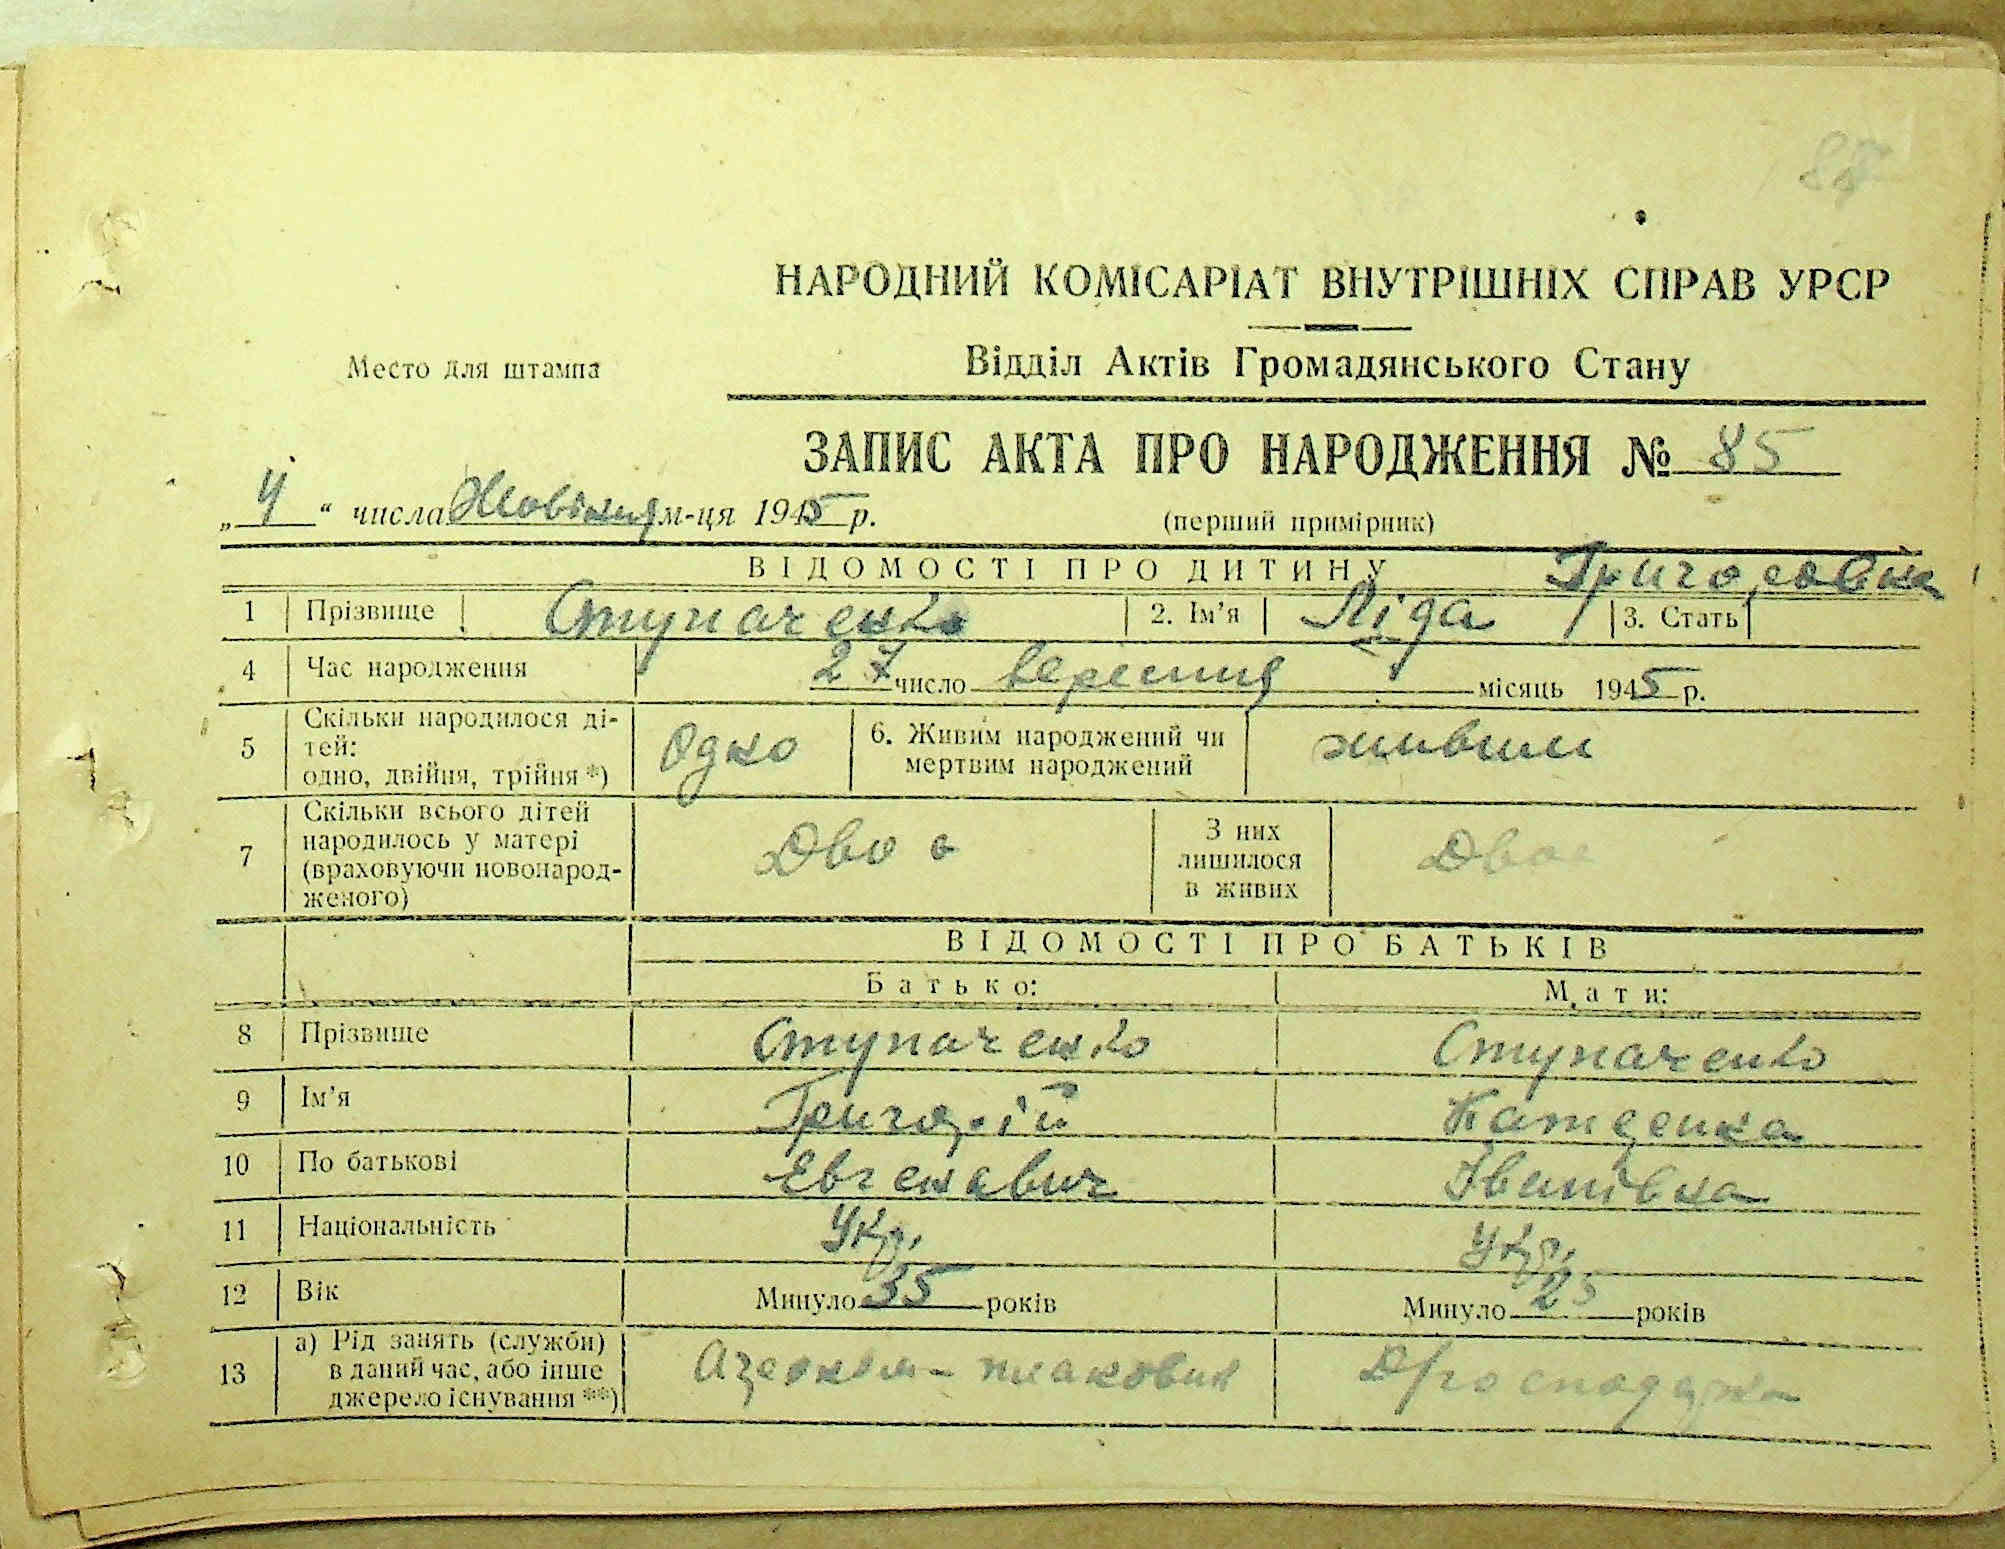 НАРОДНИЙ КОМІСАРІАТ ВНУТРІШНІХ СПРАВ УРСР
Место для штампа
Відділ Актів Громадянського Стану
ЗАПИС АКТА ПРО НАРОДЖЕННЯ № 85
„4“ числа Жовтня м-ця 1945 р.
(перший примірник)
ВІДОМОСТІ ПРО ДИТИНУ
Григоровна
1 Прізвище Ступаченко 2. Ім'я Ліда 3. Стать
4 Час народження 27 число вересня місяць 1945 р.
5 Скільки народилося ді-
тей:
одно, двійня, трійня *) Одно 6. Живим народжений чи
мертвим народжений живим
7 Скільки всього дітей
народилось у матері
(враховуючи новонарод-
женого) Двоє З них
лишилося
в живих Двоє
ВІДОМОСТІ ПРО БАТЬКІВ
Батько: Мати:
8 Прізвище Ступаченко Ступаченко
9 Ім'я Григорій
10 По батькові Евгенавич Іванівна
11 Національність Укр. Укр.
12 Вік Минуло 35 років Минуло 25 років
13 а) Рід занять (служби)
в даний час, або інше
джерело існування **)